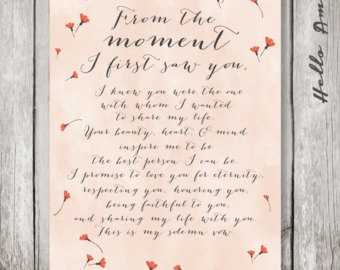 From the
moment
I first saw you,
I knew you were the one
with whom I wanted
to share my life.
Your beauty, heart, & mind
inspire me to be
the best person I can be.
I promise to love you for eternity,
respecting you, honoring you,
being faithful to you,
and sharing my life with you.
This is my solemn vow.
Hello Am